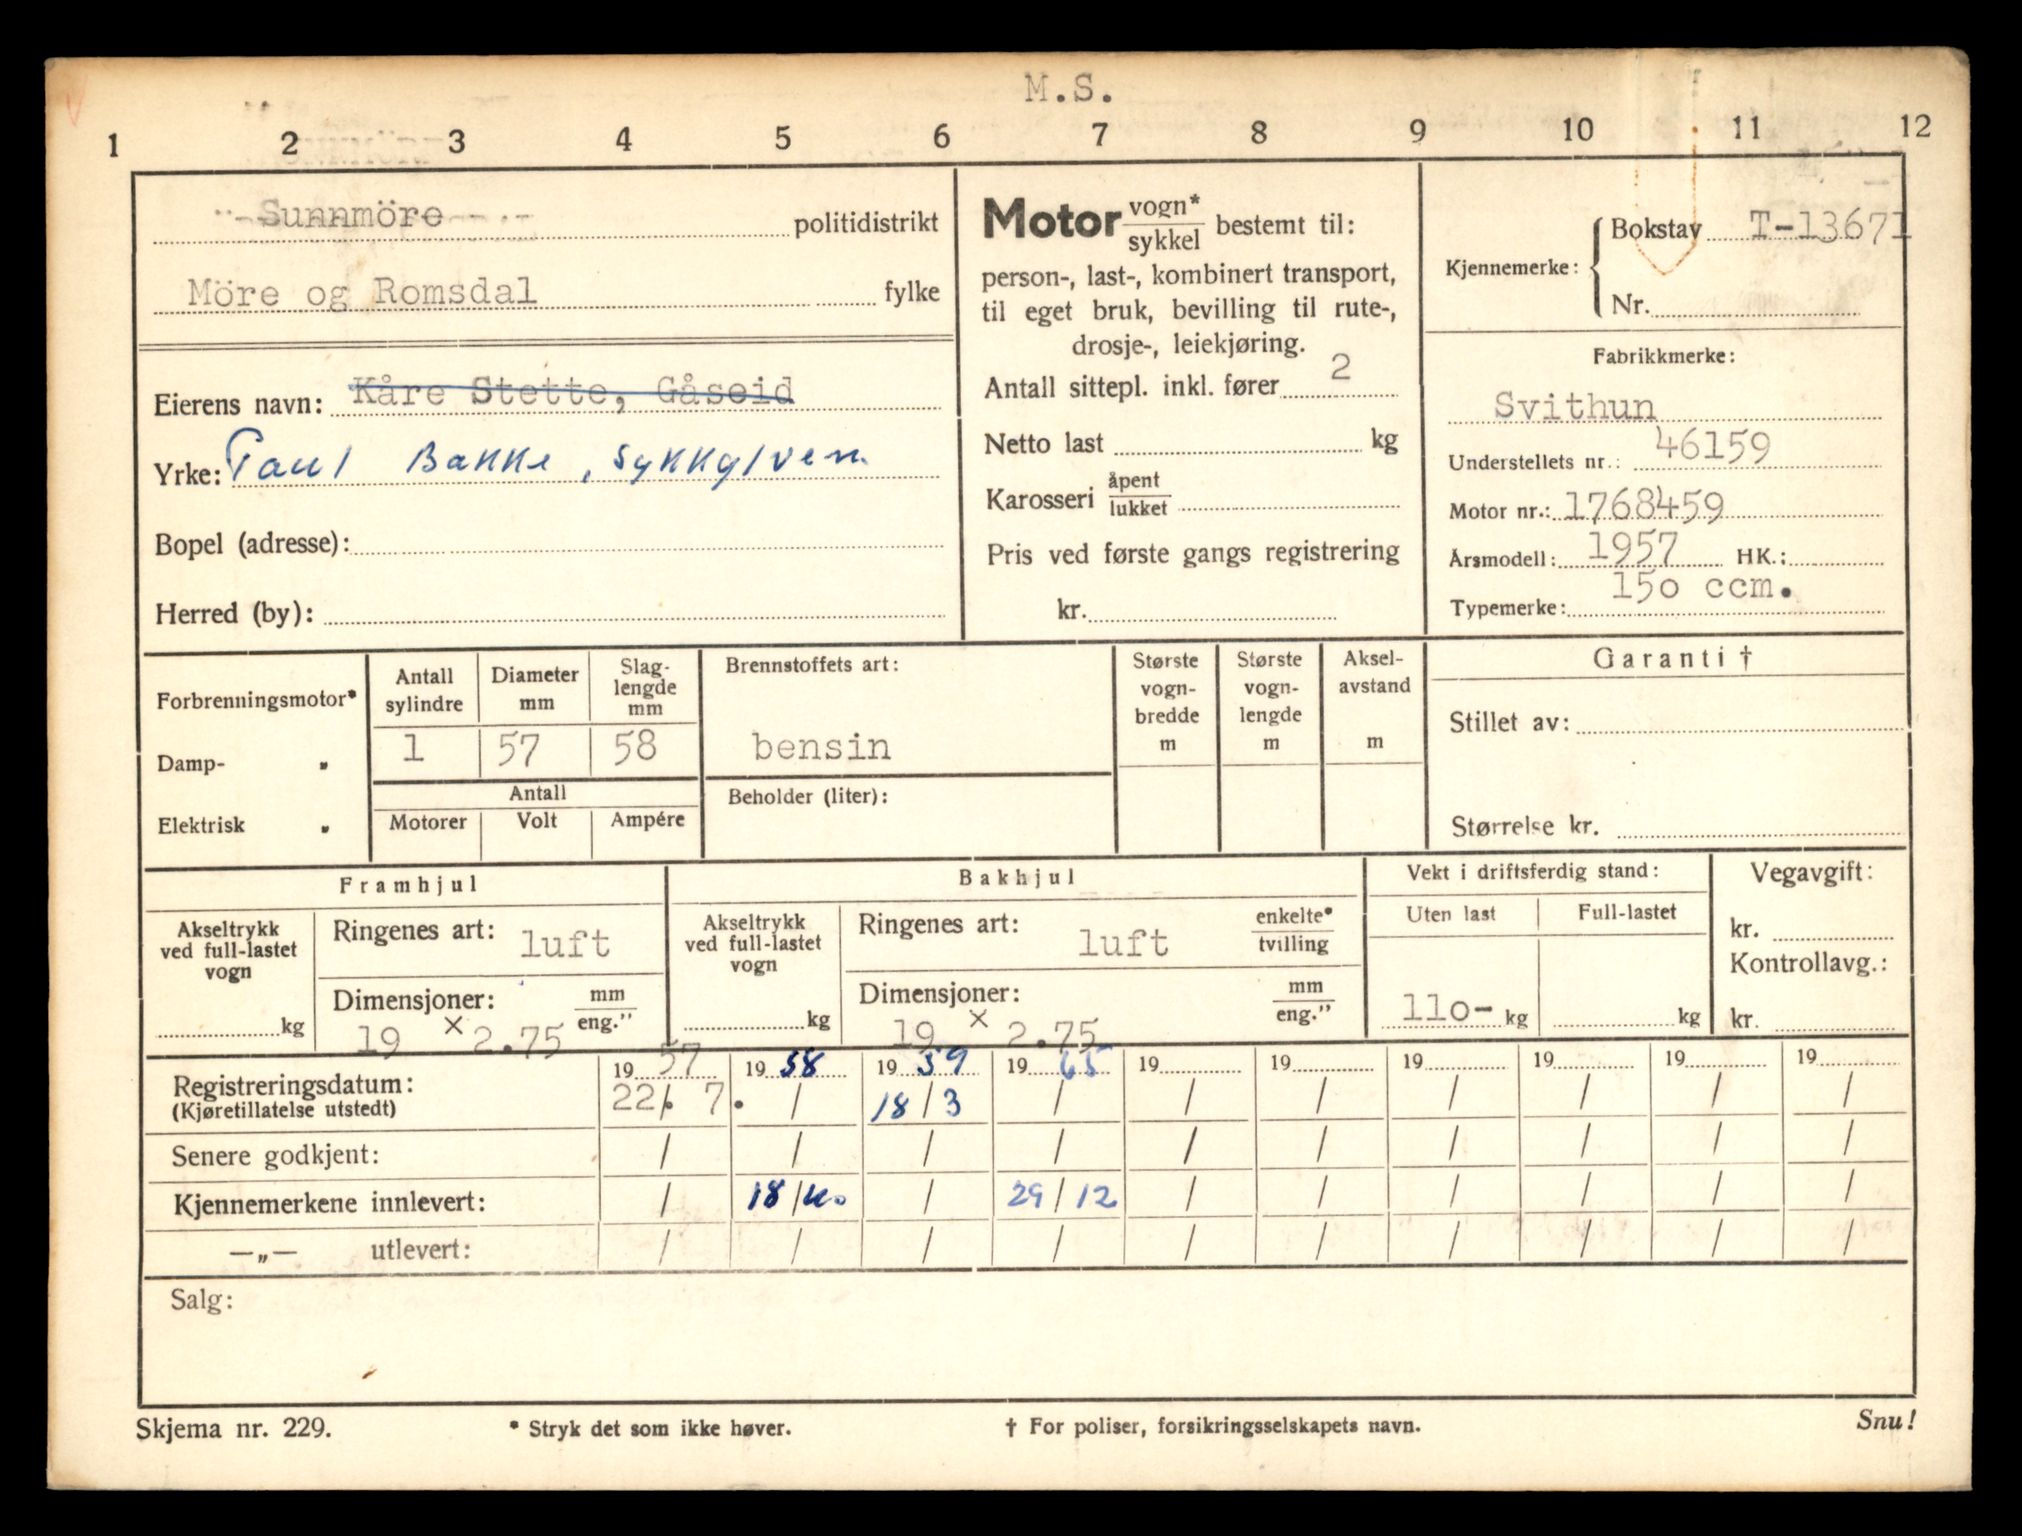 M.S.
1 2 3 4 5 6 7 8 9 10 11 12
Sunnmöre politidistrikt
Möre og Romsdal fylke
Eierens navn: Kåre Stette, Gåseid
Yrke: Paul Bakke, Sykkylven
Bopel (adresse):
Herred (by):
Motor vogn*/sykkel bestemt til:
person-, last-, kombinert transport,
til eget bruk, bevilling til rute-,
drosje-, leiekjøring.
Antall sittepl. inkl. fører 2
Netto last kg
Karosseri åpent/lukket
Pris ved første gangs registrering
kr.
Kjennemerke: Bokstav T-13671
Nr.
Fabrikkmerke:
Svithun
Understellets nr.: 46159
Motor nr.: 1768459
Årsmodell: 1957 HK.:
Typemerke: 150 ccm.
Forbrenningsmotor*
Damp- "
Elektrisk "
Antall sylindre Diameter mm Slag-lengde mm
1 57 58
Antall
Motorer Volt Ampére
Brennstoffets art:
bensin
Beholder (liter):
Største vogn-bredde m
Største vogn-lengde m
Aksel-avstand m
Garanti †
Stillet av:
Størrelse kr.
Framhjul
Akseltrykk ved full-lastet vogn
kg
Ringenes art: luft
Dimensjoner: mm/eng."
19 × 2.75
Bakhjul
Akseltrykk ved full-lastet vogn
kg
Ringenes art: luft enkelte*/tvilling
Dimensjoner: mm/eng."
19 × 2.75
Vekt i driftsferdig stand:
Uten last Full-lastet
110- kg kg
Vegavgift:
kr.
Kontrollavg.:
kr.
19 57 19 58 19 59 19 65 19 19 19 19 19 19
Registreringsdatum: 22/. 7. / 18/3 / / / / / / /
(Kjøretillatelse utstedt)
Senere godkjent: / / / / / / / / / /
Kjennemerkene innlevert: / 18/ / 29/12 / / / / / /
—„— utlevert: / / / / / / / / / /
Salg:
Skjema nr. 229. * Stryk det som ikke høver. † For poliser, forsikringsselskapets navn. Snu!